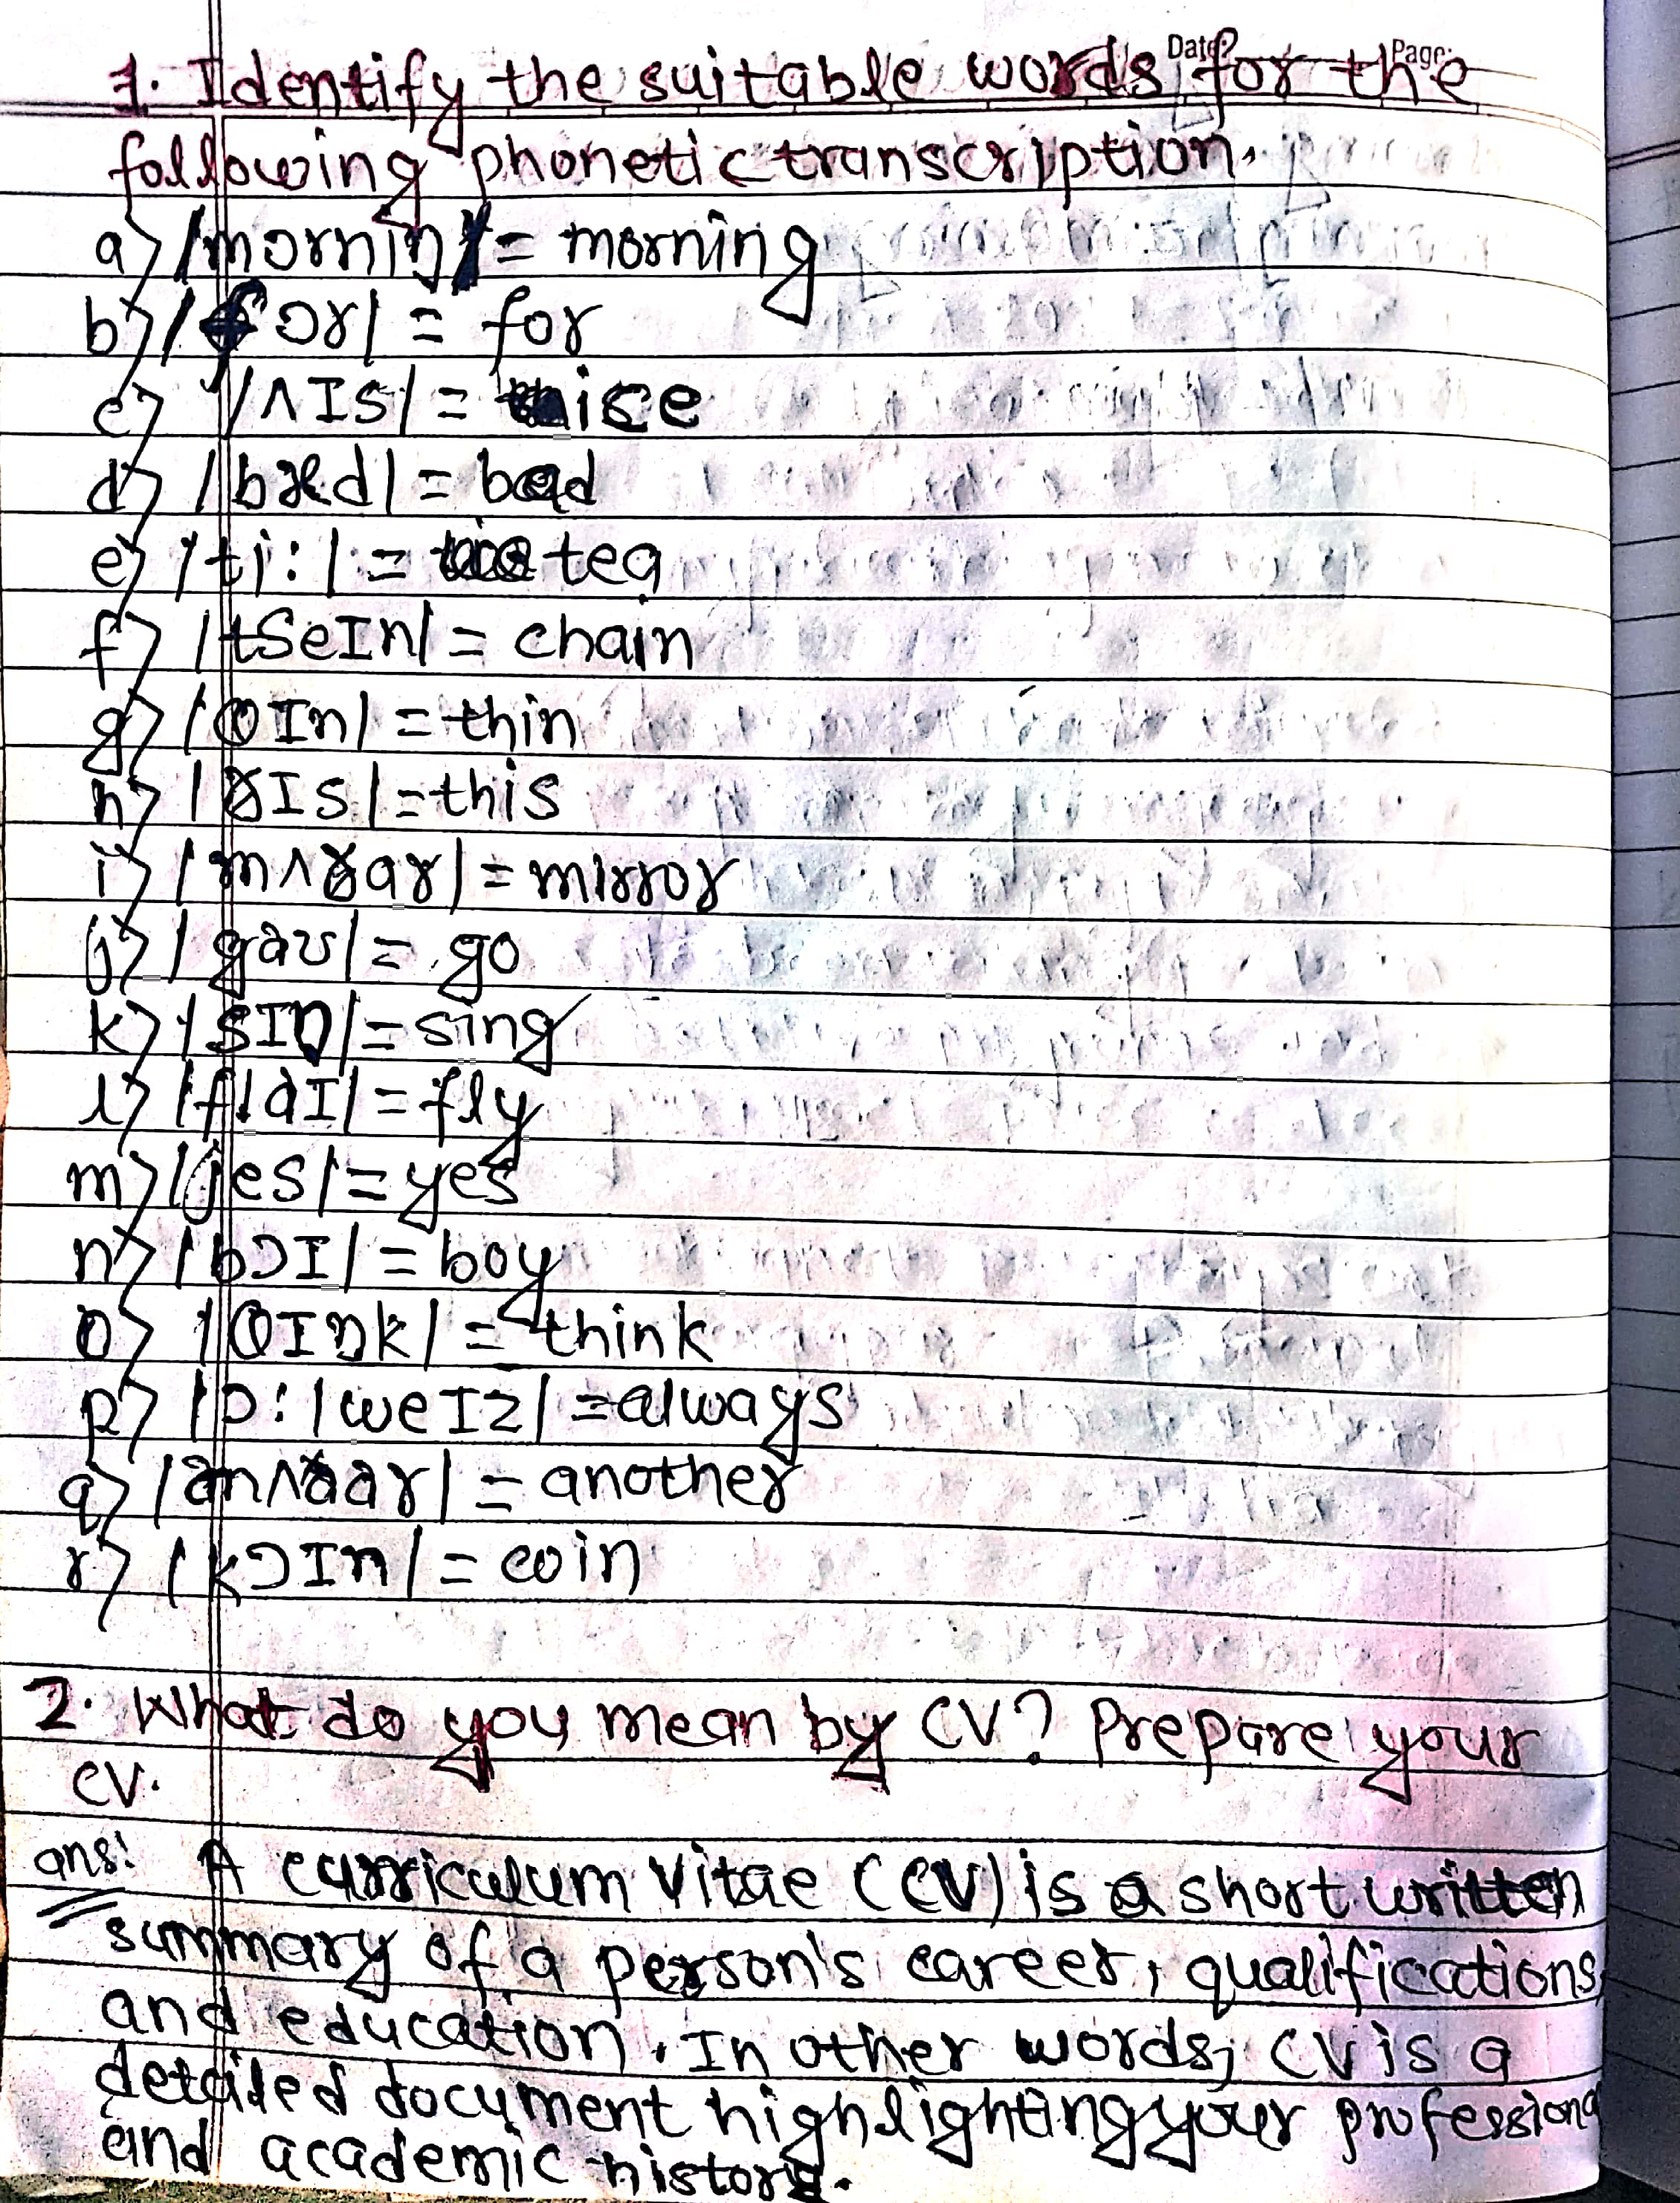 Date? Page:
1. Identify the suitable words for the
following phonetic transcription.
a) /mɔrniŋ/ = morning
b) /fɔr/ = for
c) /ʌIs/ = ice
d) /bæd/ = bad
e) /ti:/ = tea
f) /tSeIn/ = chain
g) /θIn/ = thin
h) /ðIs/ = this
i) /mʌðər/ = mirror
j) /gəʊ/ = go
k) /sIŋ/ = sing
l) /flaI/ = fly
m) /jes/ = yes
n) /bɔI/ = boy
o) /θIŋk/ = think
p) /ɔ:lweIz/ = always
q) /ənʌðər/ = another
r) /kɔIn/ = coin
2. What do you mean by CV? Prepare your
CV.
ans: A curriculum vitae (CV) is a short written
summary of a person's career, qualifications
and education. In other words, CV is a
detailed document highlighting your professiona
and academic history.